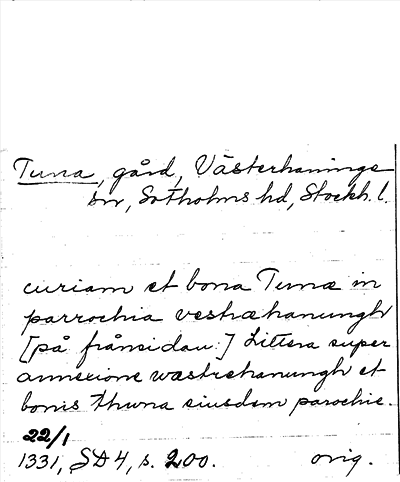 Tuna, gård, Västerhaninge
sn, Sotholms hd, Stockh. l.
curiam et bona Tunæ in
parrochia vestræhanungh
[på frånsidan:] Littera super
annexione wæstrehanungh et
bonis thuna eiusdem parochie.
22/1
1331, SD 4, s. 200. orig.